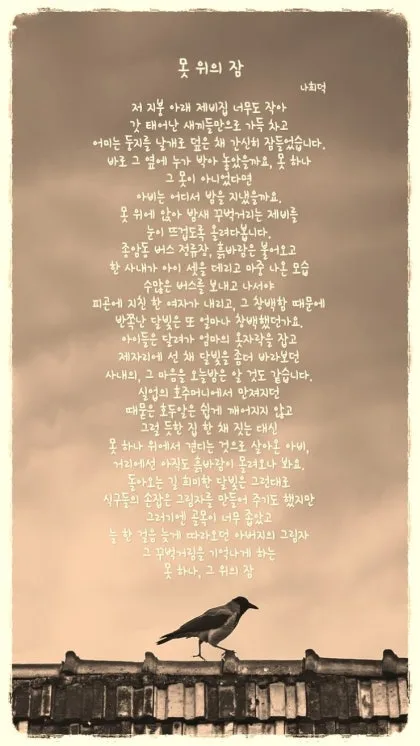 못 위의 잠
나희덕
저 지붕 아래 제비집 너무도 작아
갓 태어난 새끼들만으로 가득 차고
어미는 둥지를 날개로 덮은 채 간신히 잠들었습니다.
바로 그 옆에 누가 박아 놓았을까요, 못 하나
그 못이 아니었다면
아비는 어디서 밤을 지냈을까요.
못 위에 앉아 밤새 꾸벅거리는 제비를
눈이 뜨겁도록 올려다봅니다.
종암동 버스 정류장, 흙바람은 불어오고
한 사내가 아이 셋을 데리고 마중 나온 모습
수많은 버스를 보내고 나서야
피곤에 지친 한 여자가 내리고, 그 창백함 때문에
반쪽난 달빛은 또 얼마나 창백했던가요.
아이들은 달려가 엄마의 옷자락을 잡고
제자리에 선 채 달빛을 좀더 바라보던
사내의, 그 마음을 오늘밤은 알 것도 같습니다.
실업의 호주머니에서 만져지던
때묻은 호두알은 쉽게 깨어지지 않고
그럴 듯한 집 한 채 짓는 대신
못 하나 위에서 견디는 것으로 살아온 아비,
거리에선 아직도 흙바람이 몰려오나 봐요.
돌아오는 길 희미한 달빛은 그런대로
식구들의 손잡은 그림자를 만들어 주기도 했지만
그러기엔 골목이 너무 좁았고
늘 한 걸음 늦게 따라오던 아버지의 그림자
그 꾸벅거림을 기억나게 하는
못 하나, 그 위의 잠